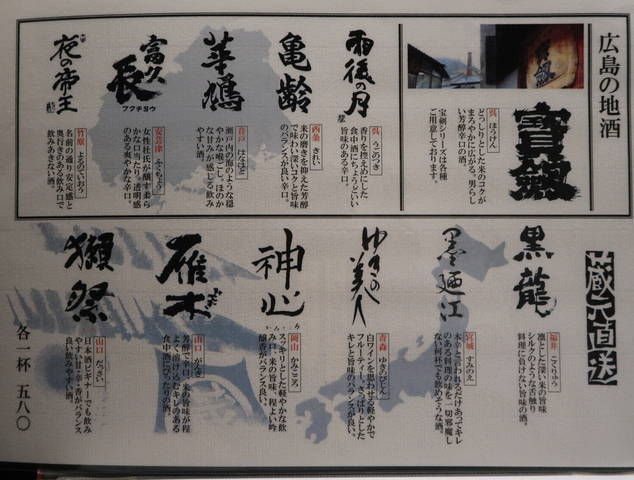 広島の地酒
寶劔
呉 ほうけん
どっしりとした米のコクが
まろやかに広がる。男らし
い芳醇辛口の酒。
宝剣シリーズは各種
ご用意しております。
雨後の月
呉 うごのつき
香りを控えめにした
食中酒にちょうどいい
旨味のある辛口。
亀齢
西条 きれい
米の磨きを抑えた芳醇
で味わい深いコクと旨味
のバランスが良い辛口。
華鳩
音戸 はなはと
瀬戸内の海のような穏
やかな喉ごし。ほのか
な甘みが感じる飲み
やすい酒。
富久長
フクチョウ
安芸津 ふくちょう
女性杜氏が醸す柔ら
かな口当たり。透明感
のある爽やかな辛口。
夜の帝王
竹原 よるのていおう
名前の通り安定感と
奥行きのある飲み口で
飲みあきない酒。
蔵元直送
黒龍
福井 こくりゅう
凛とした深い米の旨味
シルクのような舌触り
料理に負けない旨味の酒。
墨廼江
宮城 すみのえ
本辛と言われるだけあってキレ
のある料理の味を一切邪魔し
ない何杯でも飲めそうな酒。
ゆきの美人
青森 ゆきのびじん
白ワインを思わせる軽やかで
フルーティー。さっぱりとした
キレと旨味のバランスが良い。
神心
かみこころ
岡山 かみごころ
スッキリとした軽やかな飲
み口、米の旨味、程よい吟
醸香がバランス良い。
雁木
がんぎ
山口 がんぎ
芳醇で辛口、米の旨味が程
よく溶け込むキレのある
食中酒にぴったりの酒。
獺祭
山口 だっさい
日本酒ビギナーでも飲み
やすい甘・辛・香がバランス
良い飲みやすい酒。
各一杯 五八〇